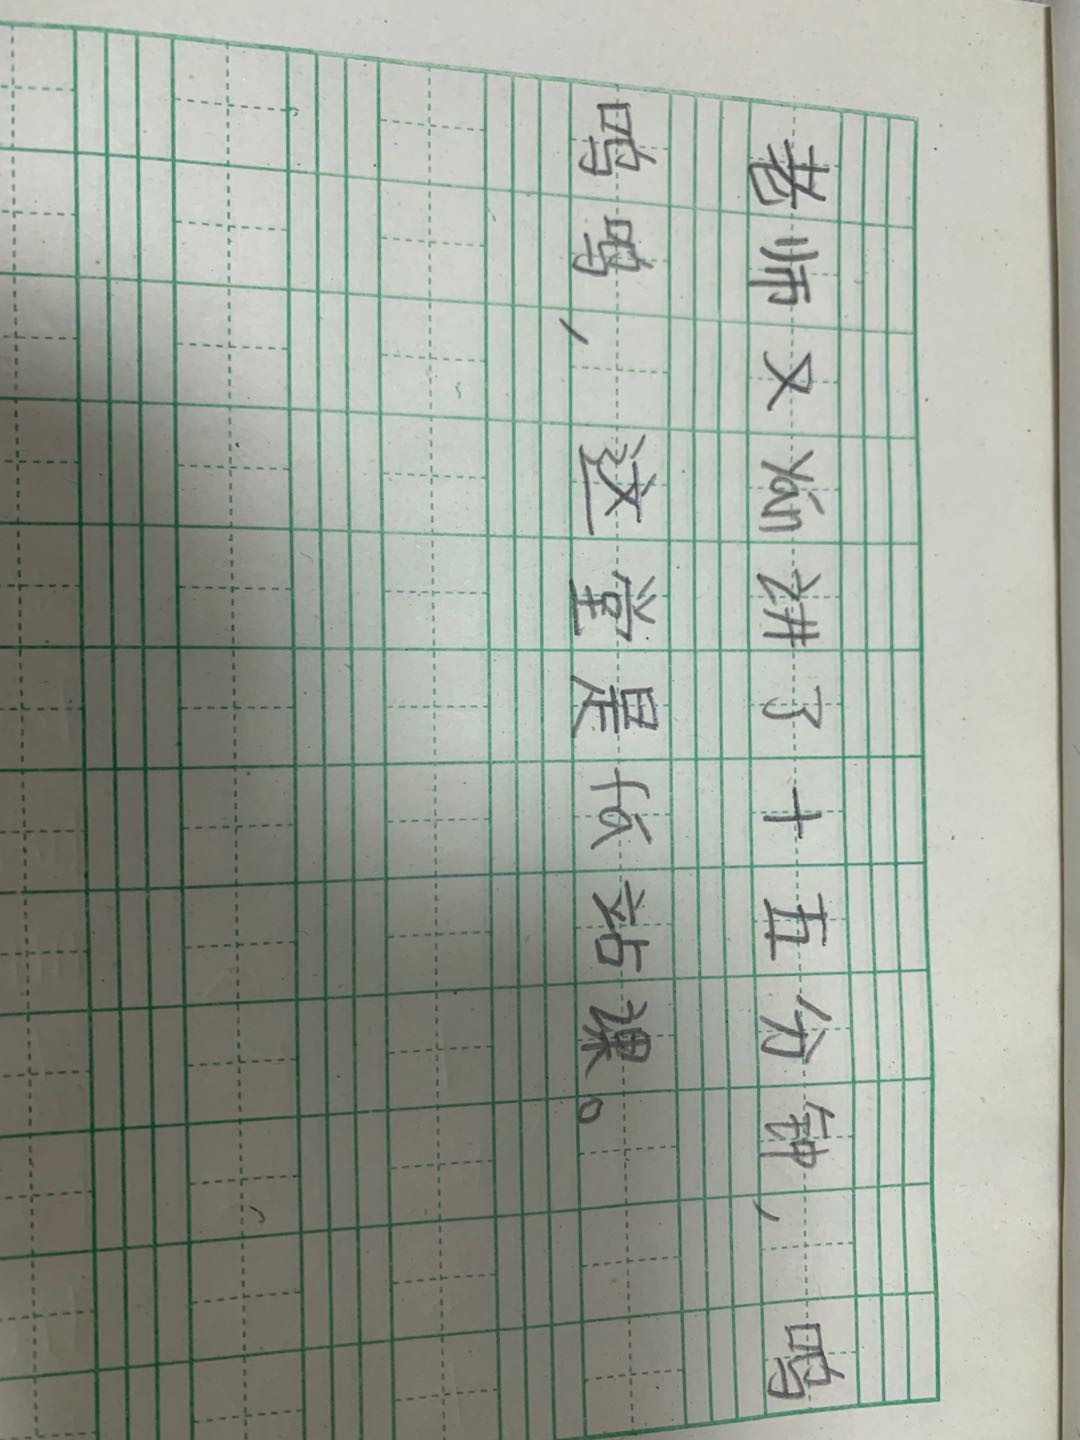 老师又yán讲了十五分钟，呜
呜呜，这堂是伩站课。